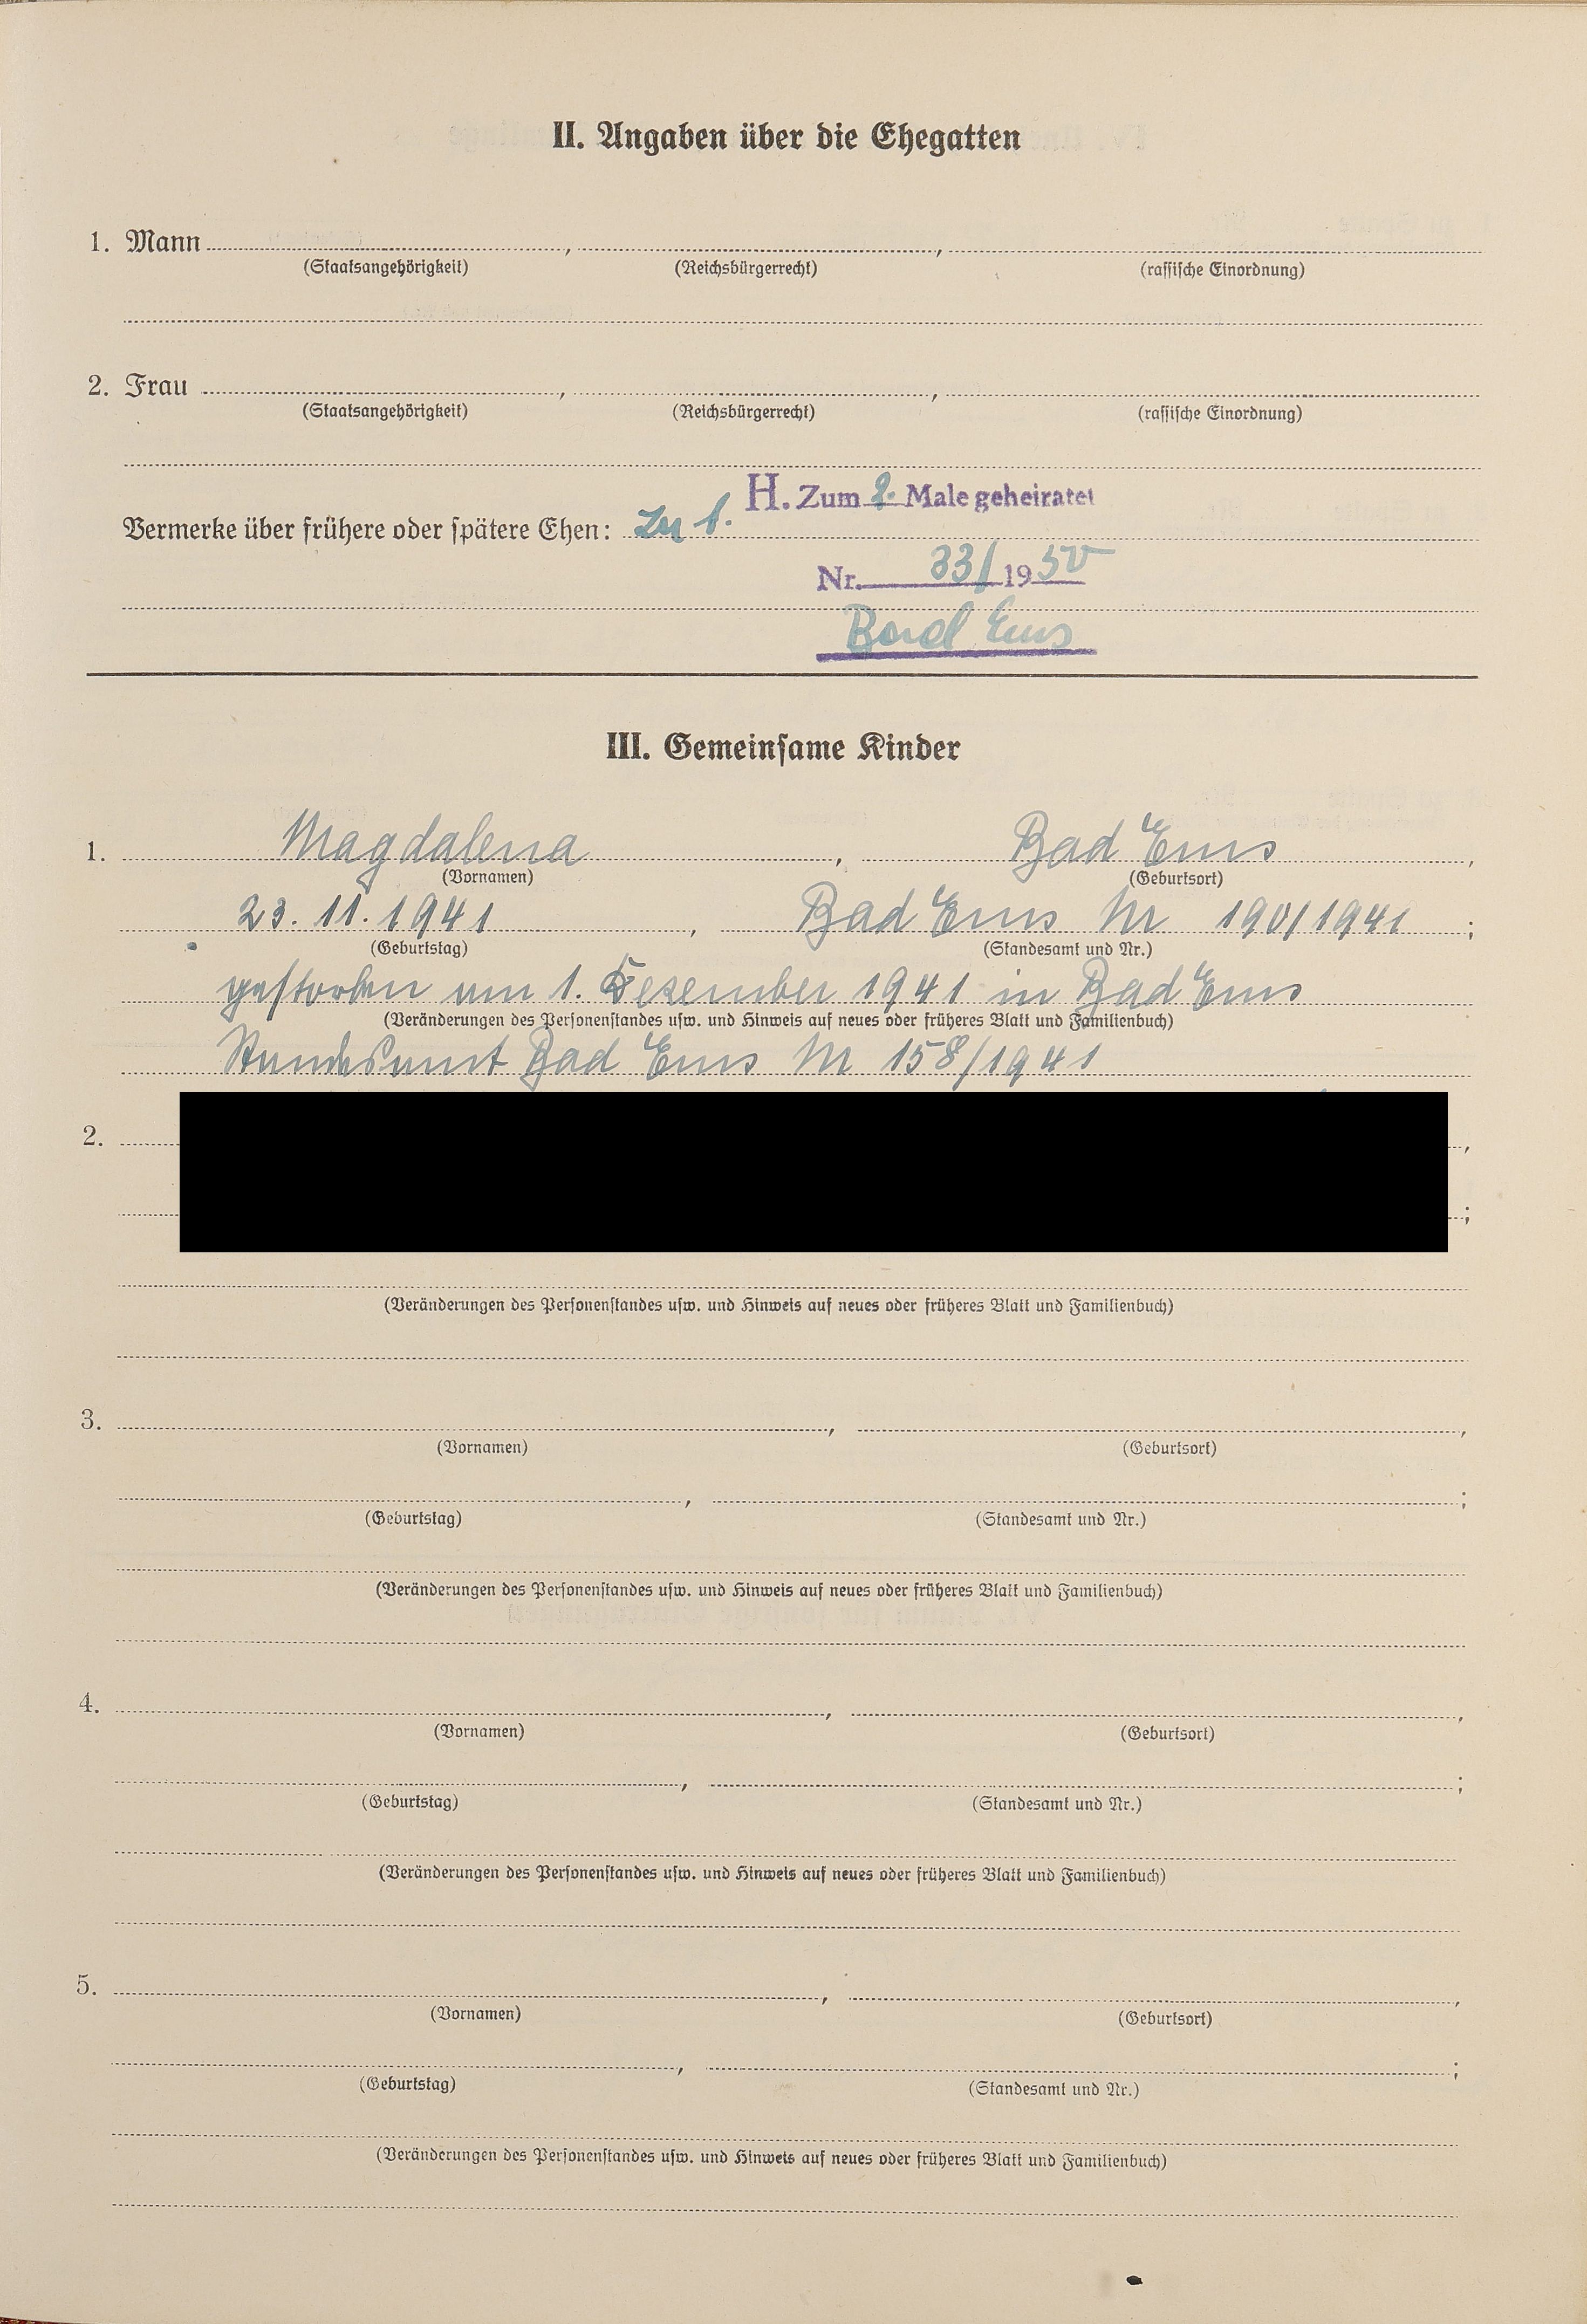 II. Angaben über die Ehegatten
1. Mann
(Staatsangehörigkeit) (Reichsbürgerrecht) (rassische Einordnung)
2. Frau
(Staatsangehörigkeit) (Reichsbürgerrecht) (rassische Einordnung)
H. Zum 2. Male geheiratet
Vermerke über frühere oder spätere Ehen: Zu 1.
Nr. 33/1950
Bad Ems
III. Gemeinsame Kinder
1. Magdalena, Bad Ems,
(Vornamen) (Geburtsort)
23.11.1941, Bad Ems Nr 190/1941;
(Geburtstag) (Standesamt und Nr.)
gestorben am 1. Dezember 1941 in Bad Ems
(Veränderungen des Personenstandes usw. und Hinweis auf neues oder früheres Blatt und Familienbuch)
Standesamt Bad Ems Nr 158/1941
2. ,
;
(Veränderungen des Personenstandes usw. und Hinweis auf neues oder früheres Blatt und Familienbuch)
3. , ,
(Vornamen) (Geburtsort)
, ;
(Geburtstag) (Standesamt und Nr.)
(Veränderungen des Personenstandes usw. und Hinweis auf neues oder früheres Blatt und Familienbuch)
4. , ,
(Vornamen) (Geburtsort)
, ;
(Geburtstag) (Standesamt und Nr.)
(Veränderungen des Personenstandes usw. und Hinweis auf neues oder früheres Blatt und Familienbuch)
5. , ,
(Vornamen) (Geburtsort)
, ;
(Geburtstag) (Standesamt und Nr.)
(Veränderungen des Personenstandes usw. und Hinweis auf neues oder früheres Blatt und Familienbuch)